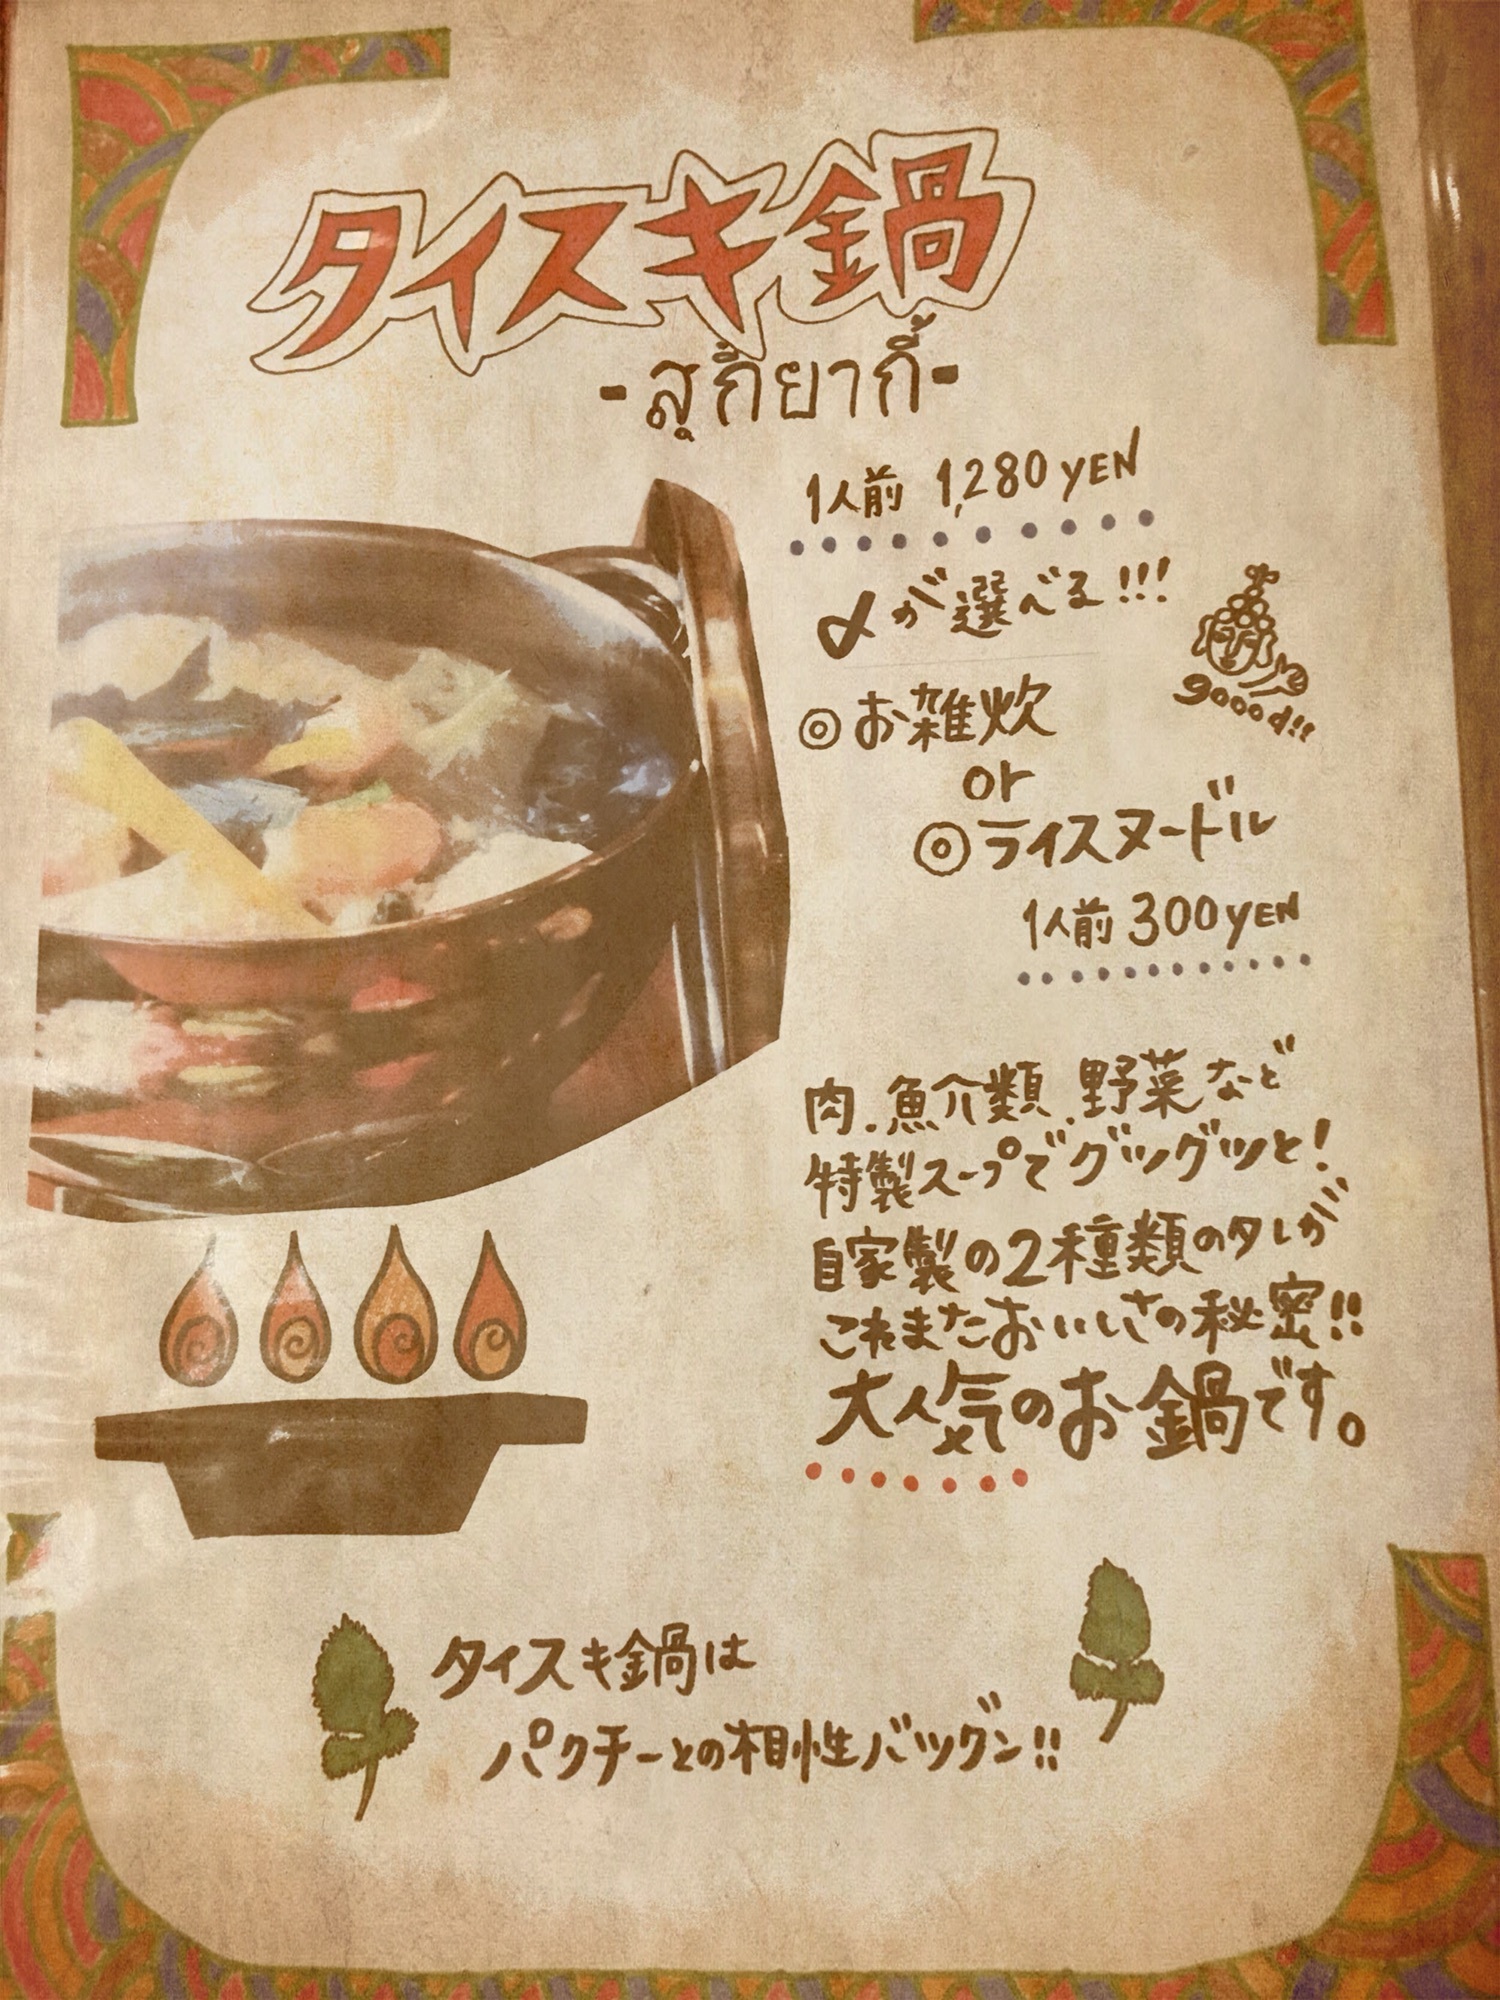 タイスキ鍋
-สุกี้ยากี้-
1人前 1,280 YEN
〆が選べる!!!
goood!!
◎お雑炊
or
◎ライスヌードル
1人前 300 YEN
肉.魚介類.野菜など
特製スープでグツグツと!
自家製の2種類のタレが
これまたおいしさの秘密!!
大人気のお鍋です。
タイスキ鍋は
パクチーとの相性バツグン!!